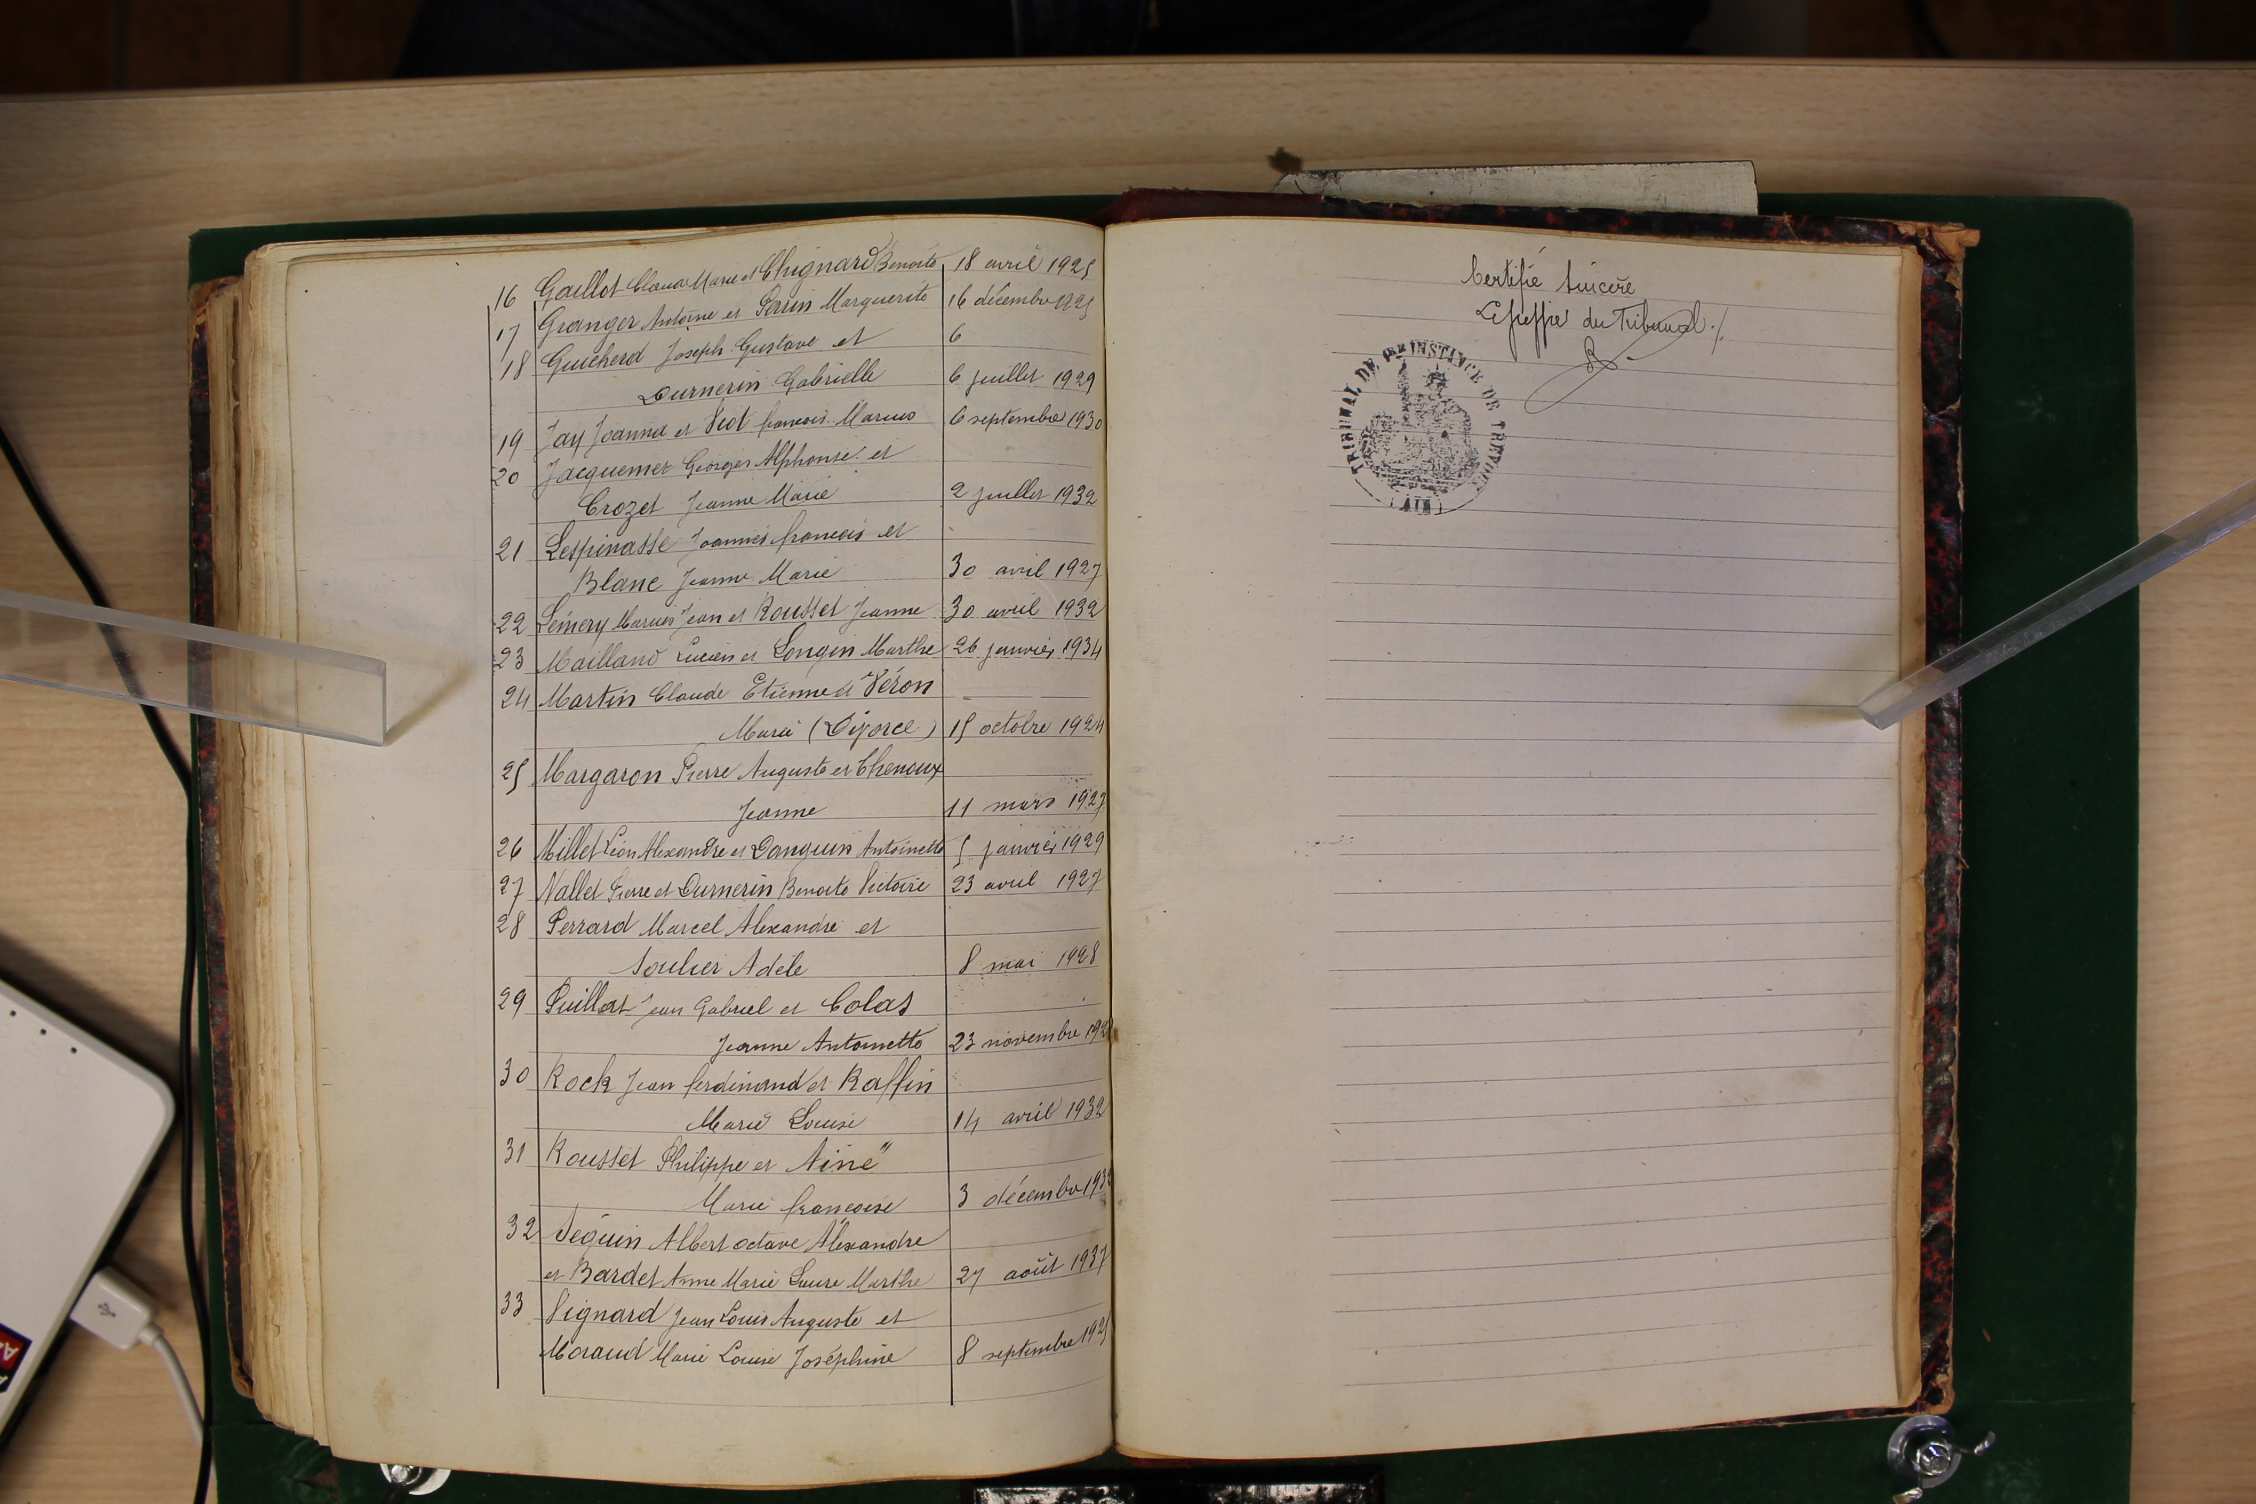 16 Gaillot Claude Marie et Chignard Benoite 18 avril 1925
17 Granger Antoine et Perrin Marguerite 16 décembre 1925
18 Guicherd Joseph Gustave et 6
Durnerin Gabrielle 6 juillet 1929
19 Jay Joanna et Viot françois Marius 6 septembre 1930
20 Jacquemet Georges Alphonse et
Crozet Jeanne Marie 2 juillet 1932
21 Lespinasse Joannès françois et
Blanc Jeanne Marie 30 avril 1927
22 Lémery Marius Jean et Rousset Jeanne 30 avril 1932
23 Mailland Lucien et Longin Marthe 26 janvier 1934
24 Martin Claude Etienne et Véron
Marie (Divorce) 15 octobre 1924
25 Margaron Pierre Auguste et Chenoux
Jeanne 11 mars 1927
26 Millet Léon Alexandre et Danguin Antoinette 5 janvier 1929
27 Nallet Pierre et Durnerin Benoite Victoire 23 avril 1927
28 Perrard Marcel Alexandre et
Soulier Adèle 8 mai 1928
29 Puillat Jean Gabriel et Colas
Jeanne Antoinette 23 novembre
30 Rock Jean ferdinand et Raffin
Marie Louise 14 avril 1932
31 Rousset Philippe et Ainé
Marie françoise 3 décembre
32 Séquin Albert octave Alexandre
et Bardet Anne Marie Laure Marthe 27 août 1937
33 Vignard Jean Louis Auguste et
Moraud Marie Louise Joséphine 8 septembre 1925
Certifié Sincère
Le Greffier du Tribunal ./.
TRIBUNAL DE 1ERE INSTANCE DE TREVOUX
(AIN)